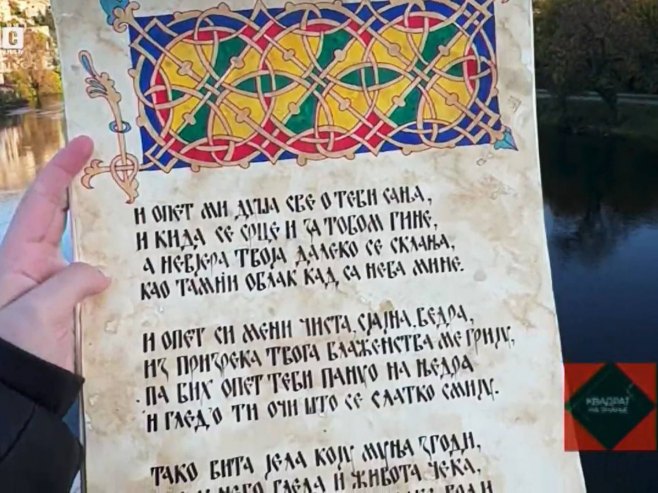 И ОПЕТ МИ ДУША СВЕ О ТЕБИ САЊА,
И КИДА СЕ СРЦЕ И ЗА ТОБОМ ГИНЕ,
А НЕВЈЕРА ТВОЈА ДАЛЕКО СЕ СКЛАЊА,
КАО ТАМНИ ОБЛАК КАД СА НЕБА МИНЕ.
И ОПЕТ СИ МЕНИ ЧИСТА, СЈАЈНА, ВЕДРА,
ИЗ ПРИЗРЕКА ТВОГА БЛАЖЕНСТВА МЕ ГРИЈУ,
ПА БИХ ОПЕТ ТЕБИ ПАНУО НА ЊЕДРА
И ГЛЕД'О ТИ ОЧИ ШТО СЕ СЛАТКО СМИЈУ.
ТАКО ВИТА ЈЕЛА КОЈУ МУЊА ЗГОДИ,
ГЛЕДА И ЖИВОТА ЧЕКА,
КВАДРАТ
НА ЗНАЊЕ